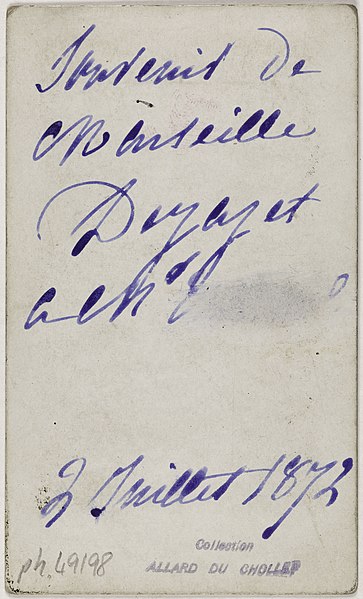 Souvenir de
Marseille
Dejazet
a Mr
2 Juillet 1872
Collection
ALLARD DU CHOLLET
ph.49198